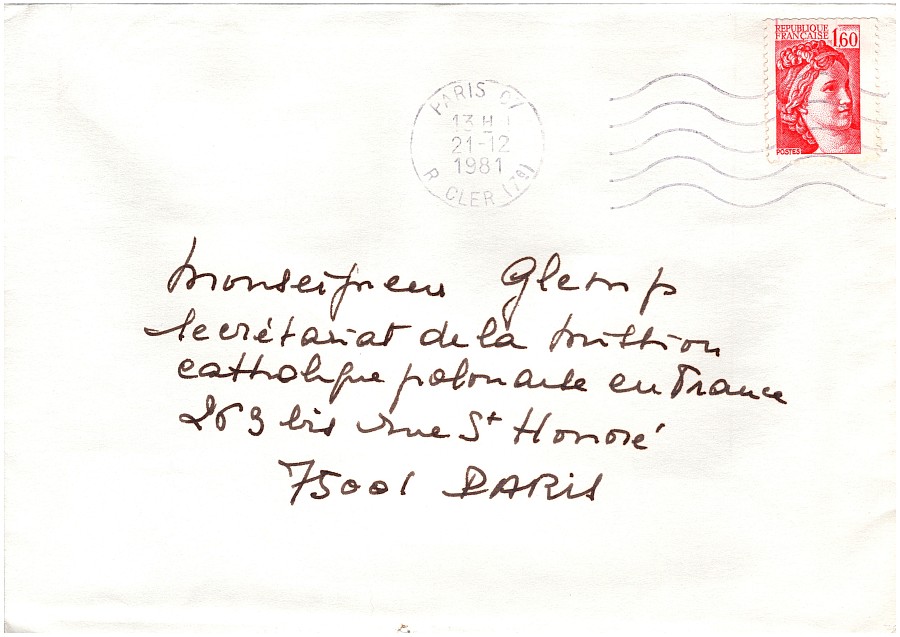 REPUBLIQUE
FRANCAISE
1,60
POSTES
PARIS 07
13 H
21-12
1981
R. CLER (7e)
Monseigneur Glemp
Secrétariat de la Mission
catholique polonaise en France
263 bis rue St Honoré
75001 PARIS